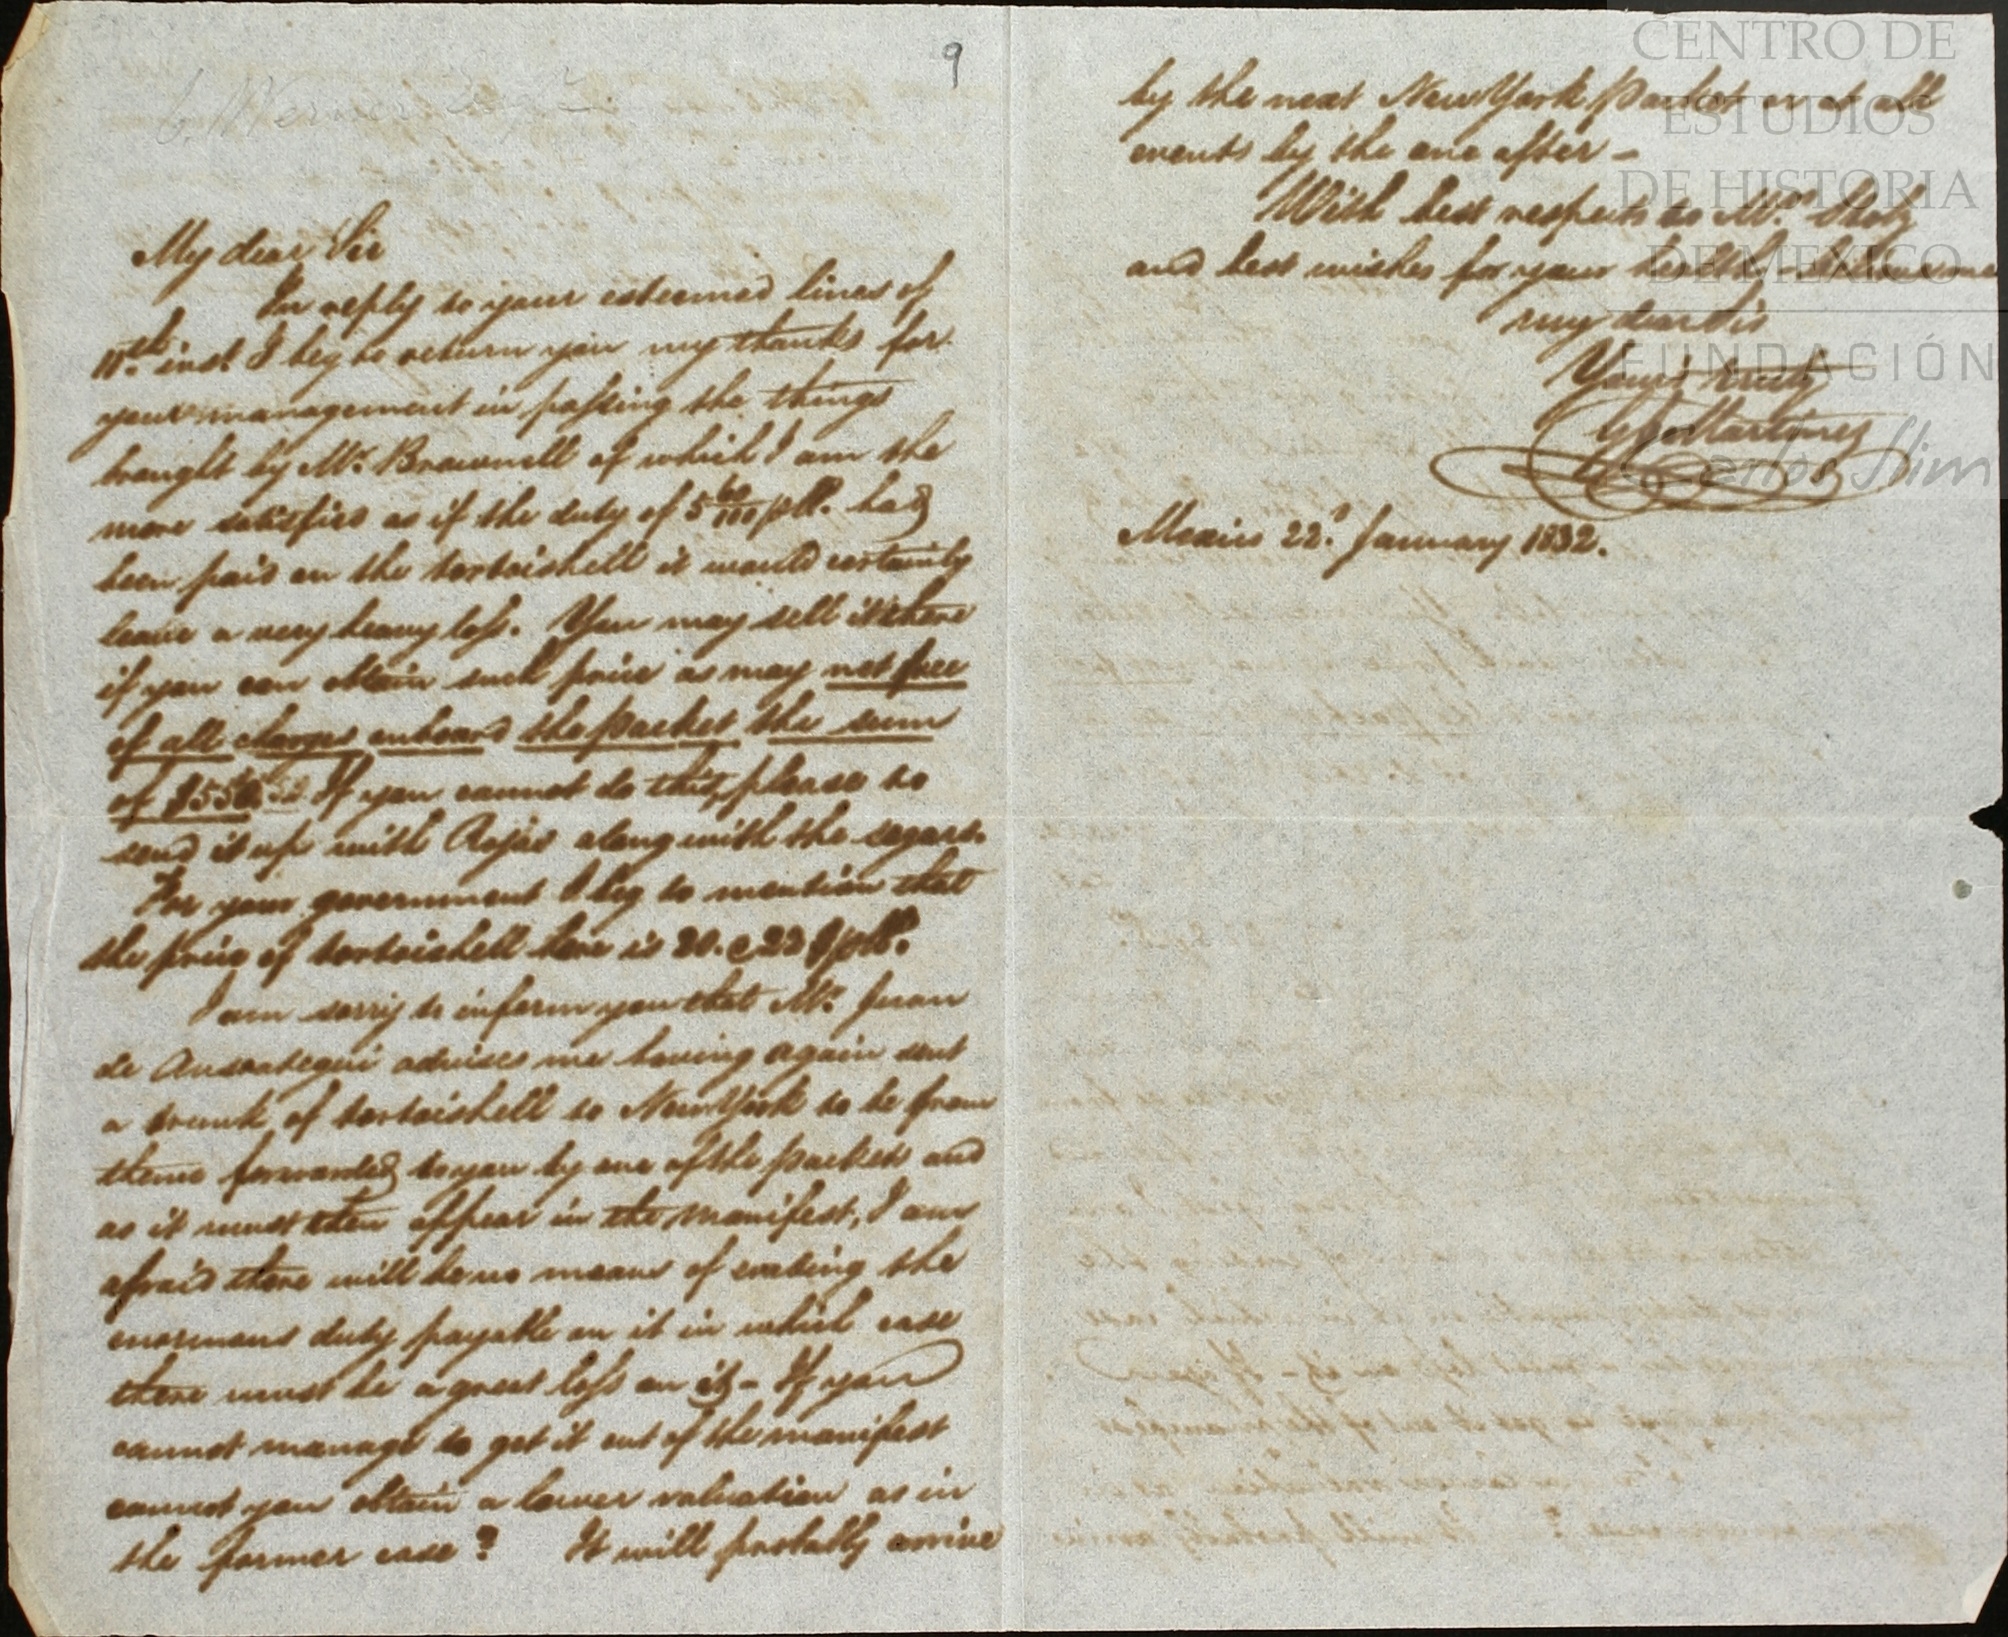 9
My dear Sir
In reply to your esteemed lines of
inst. I beg to return you my thanks for
your management in passing the things
brought by Mr. Brownell of which I am the
more satisfied as if the duty of 5 60/100 p lb. had
been paid on the tortoishell it would certainly
leave a very heavy loss. You may sell it there
if you can obtain such price as may net free
of all charges onboard the packet the sum
of If you cannot do this, please to
send it up with Rojas along with the segars.
For your government I beg to mention that
the price of tortoishell here is 20. @ 22 $ p lb.
I am sorry to inform you that Mr. Juan
de Ansoategui advises me having again sent
a trunk of tortoishell to New York to be from
thence forwarded to you by one of the packets and
as it must then appear in the manifest, I am
afraid there will be no means of evading the
enormous duty payable on it in which case
there must be a great loss on it - If you
cannot manage to get it out of the manifest
cannot you obtain a lower valuation as in
the former case? It will probably arrive
by the next New York packet or at all
events by the one after -
With best respects to Mrs.
and best wishes for your health - believe me
my dear Sir
Yours truly
Martinez
Mexico 22d. January 1832.
CENTRO DE
ESTUDIOS
DE HISTORIA
DE MEXICO
FUNDACIÓN
Carlos Slim